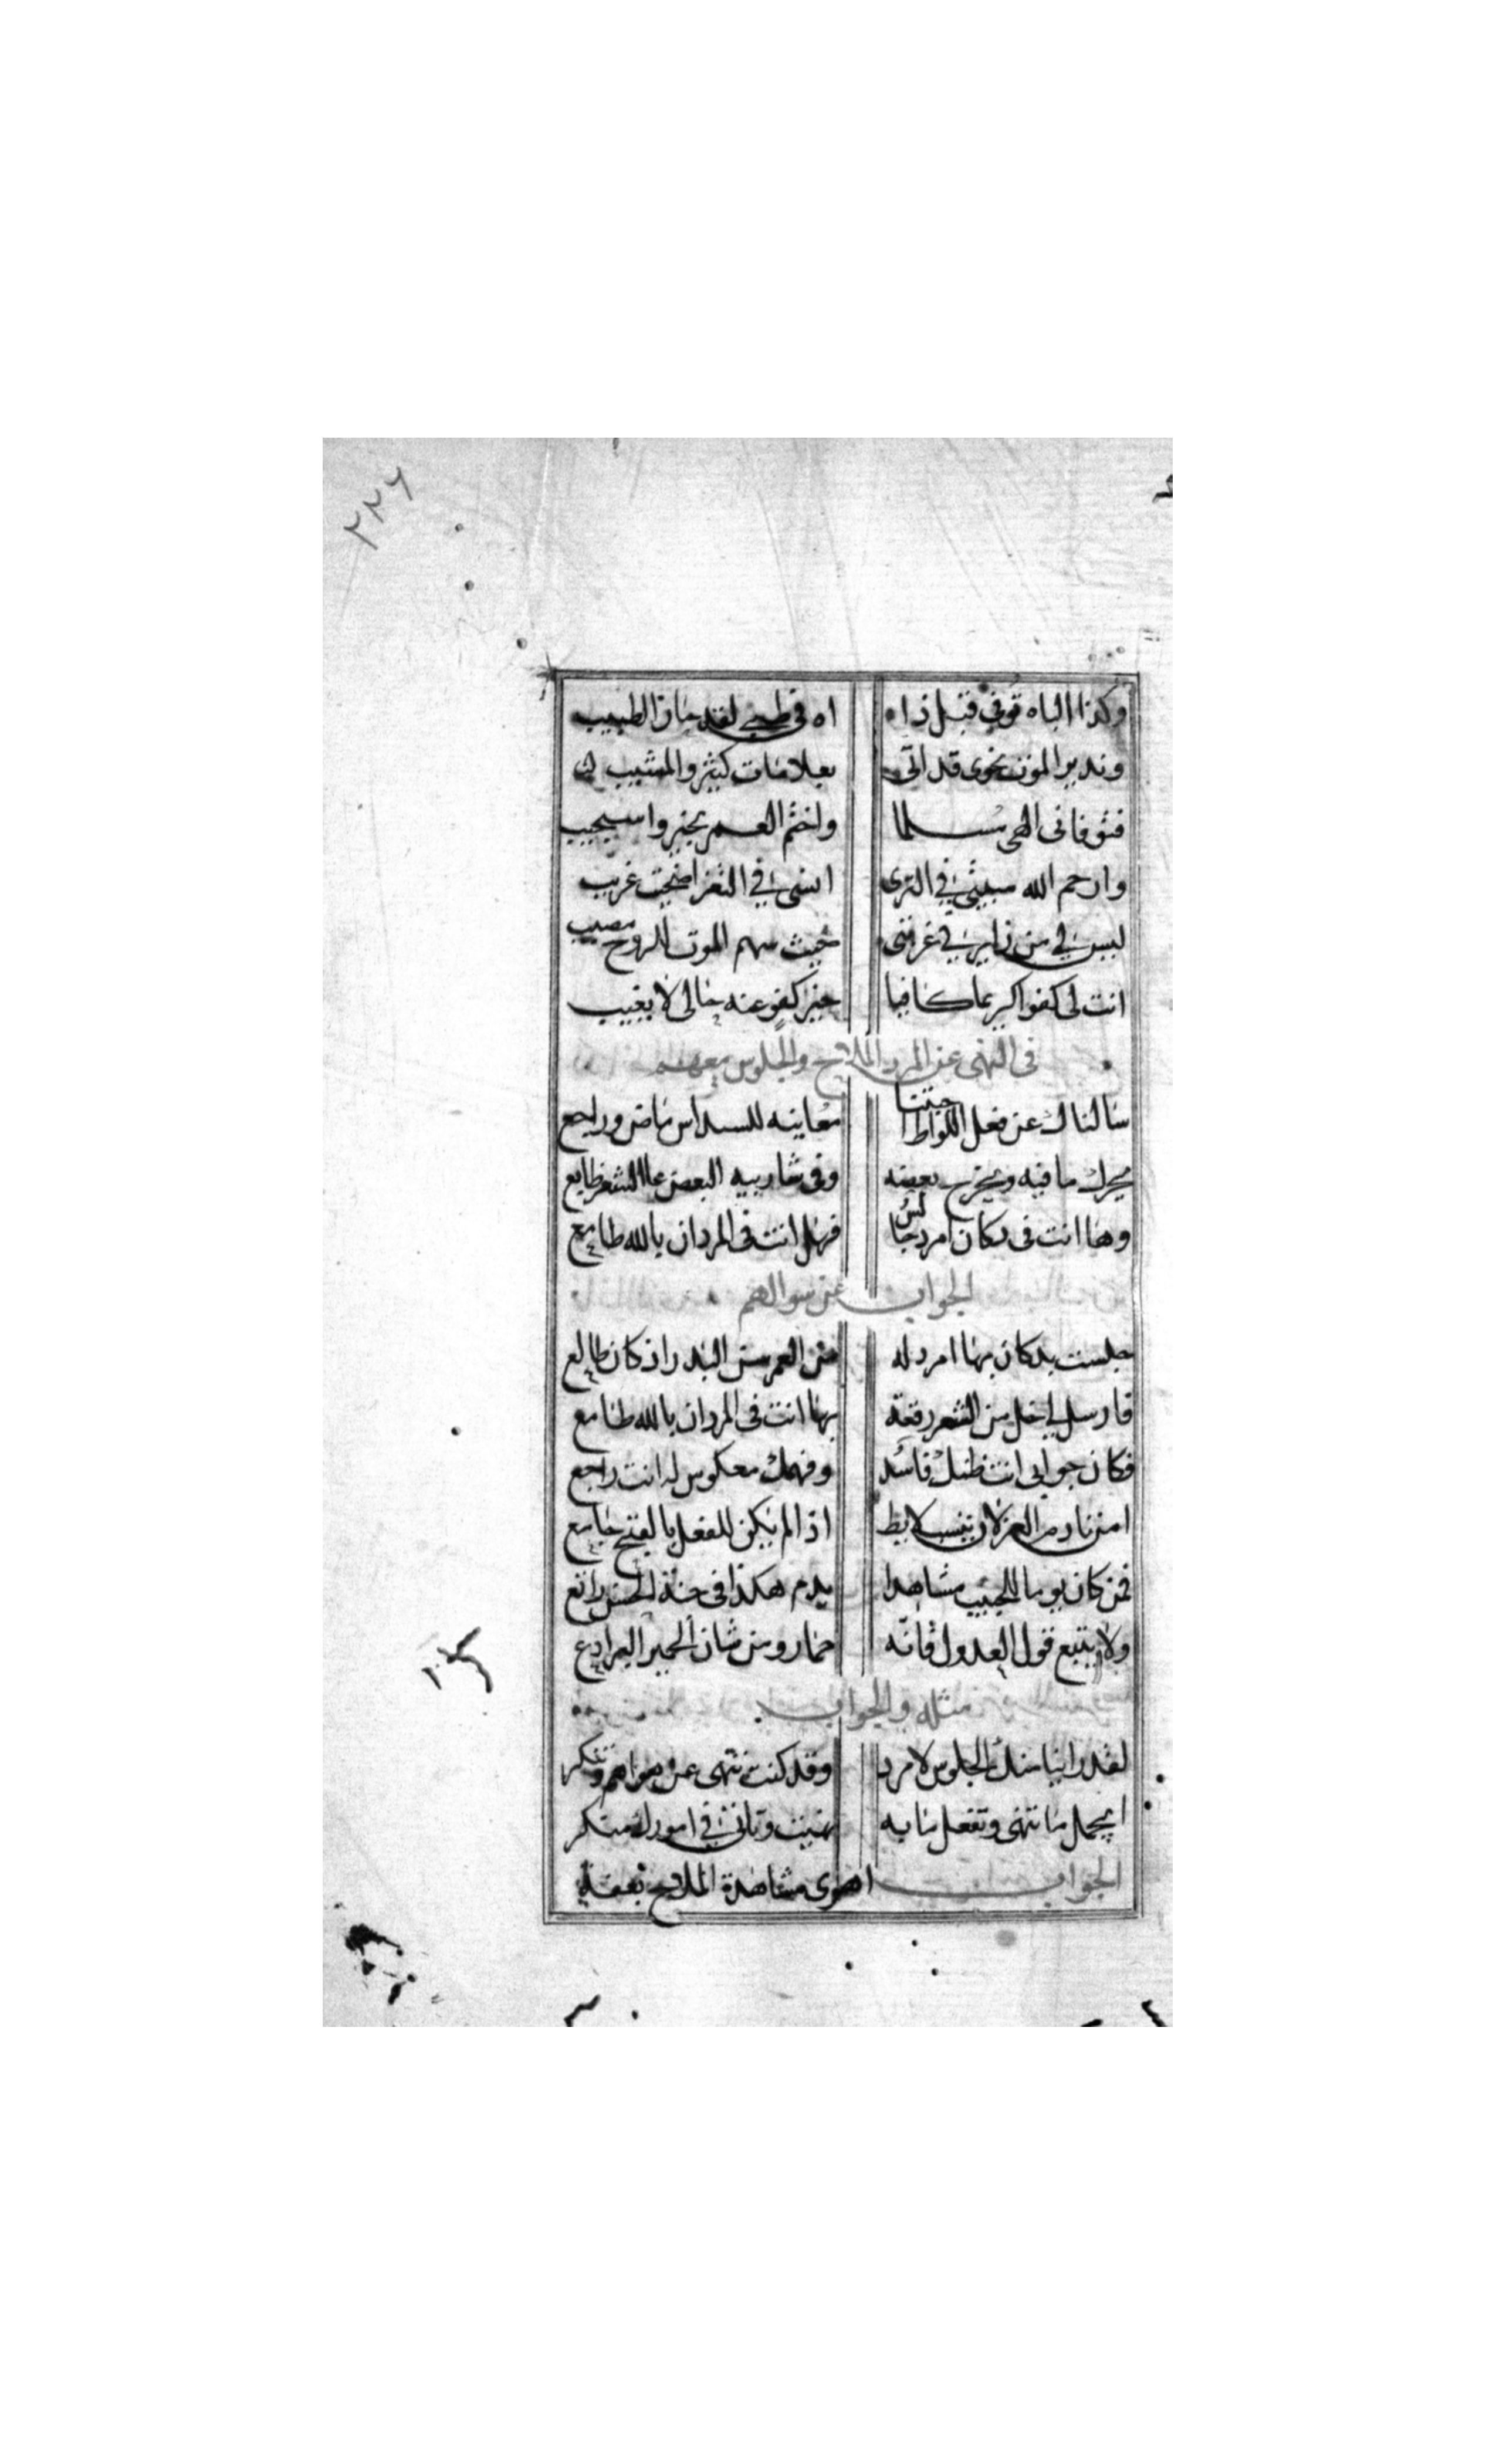 ٢٢٦
وكذا الباه قوتي قبل ذا ه اه في طبي لقد حار الطبيب
وندير الموت نحوى قد اتى بعلامات كثير والمشيب
فتوفانى الهى مسلما واختم العمر بخير واستجيب
وارحم الله مبيتي في الثرى انسى في الثغر اضحت غريب
ليس لي من زاير في غربتى حيث سهم الموت للروح مصيب
انت لى كفوا كريما كافيا خير كفو عنه حالى لا يغيب
فى النهى عن المرد الملاح والجلوس معهم
سالناك عن فعل اللواط اجبتنا معاينه للسداس ماض وراجع
يحرك ما فيه ويخرج بعضه وفى شاربيه البعض عالشعر طابع
وها انت فى دكان امرد جالس فهل انت فى المردان بالله طامع
الجواب عن سوالهم
جلست بدكان بها امرد له من العمر سن البدر اذ كان طالع
فارسل لي خل من الشعر رقعة بها انت فى المردان بالله طامع
فكان جوابى انت ظنك فاسد وفهمك معكوس له انت راجع
امن نادم الغزلان ينسب لايط اذا لم يكن للفعل بالفتح جامع
فمن كان يوما للحبيب مشاهدا يدم هكذا فى جنة الحسن راتع
ولا يتبع قول العدول فانه حمار ومن شان الحمير البرادع
مثله والجواب
لقد راينا منك الجلوس لامرد وقد كنت تنهى عن هواهم وتنكر
ايجمل ما تنهى وتفعل ما به نهيت وتانى في امورك منكر
الجواب اهوى مشاهدة الملاح بعفة